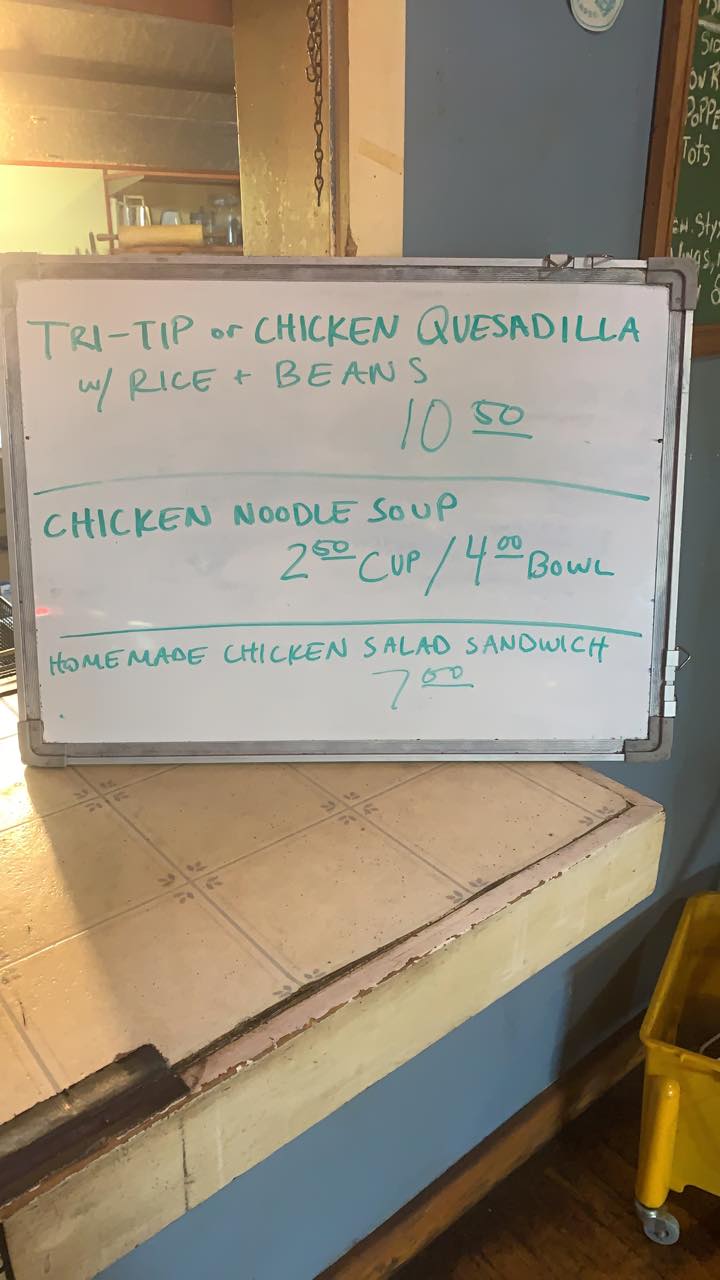 TRI-TIP or CHICKEN QUESADILLA
w/ RICE + BEANS
10 50
CHICKEN NOODLE SOUP
2 50 CUP / 4 00 BOWL
HOMEMADE CHICKEN SALAD SANDWICH
7 00
Tots